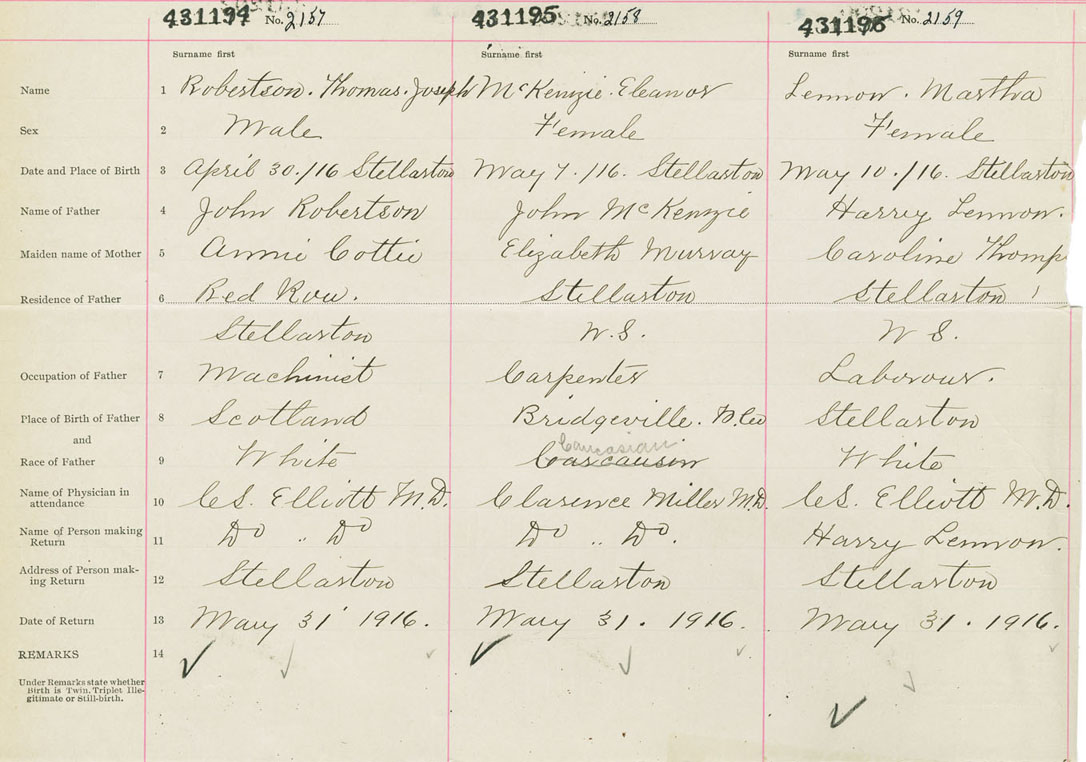 431194 No. 2157 431195 No. 2158 431196 No. 2159
Surname first Surname first Surname first
Name 1 Robertson. Thomas. Joseph McKenzie. Eleanor Lennon. Martha
Sex 2 Male Female Female
Date and Place of Birth 3 April 30./16 Stellarton May 7./16. Stellarton May 10./16. Stellarton
Name of Father 4 John Robertson John McKenzie Harry Lennon.
Maiden name of Mother 5 Annie Cottie Elizabeth Murray Caroline Thomp
Residence of Father 6 Red Row. Stellarton Stellarton
Stellarton N.S. N S.
Occupation of Father 7 Machinist Carpenter Laborour.
Place of Birth of Father 8 Scotland Bridgeville. P.Co Stellarton
and Caucasian
Race of Father 9 White Carcausin White
Name of Physician in
attendance 10 CS. Elliott M.D. Clarence Miller M.D. CS. Elliott M.D.
Name of Person making
Return 11 Do " Do Do " Do. Harry Lennon.
Address of Person mak-
ing Return 12 Stellarton Stellarton Stellarton
Date of Return 13 May 31 1916. May 31. 1916. May 31. 1916.
REMARKS 14
Under Remarks state whether
Birth is Twin, Triplet Ille-
gitimate or Still-birth.